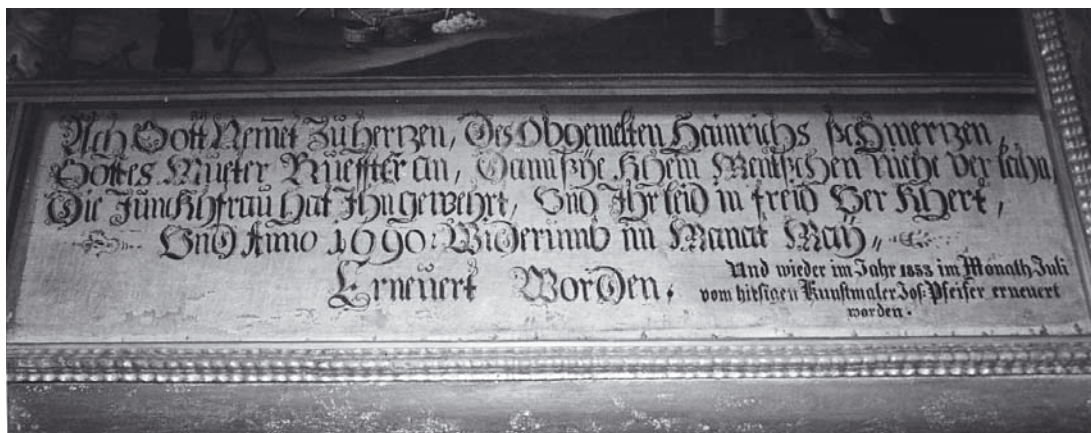 Ach Gott Nem̅et Zu hertzen, Des Obgemelten Heinrichs schmertzen,
Gottes Mueter Rüeffter an, Dann sye Khein Mentschen niehe verlahn,
Die Junckhfrau Hat Ihn gewehrt, Und Ihr leid in freid Ver Khert,
Und Anno 1690: Widerumb im Manat Maÿ„
Erneüert Worden.
Und wieder im Jahr 1853 im Monath Juli
vom hiesigen Kunstmaler Jos: Pfeifer erneuert
worden.